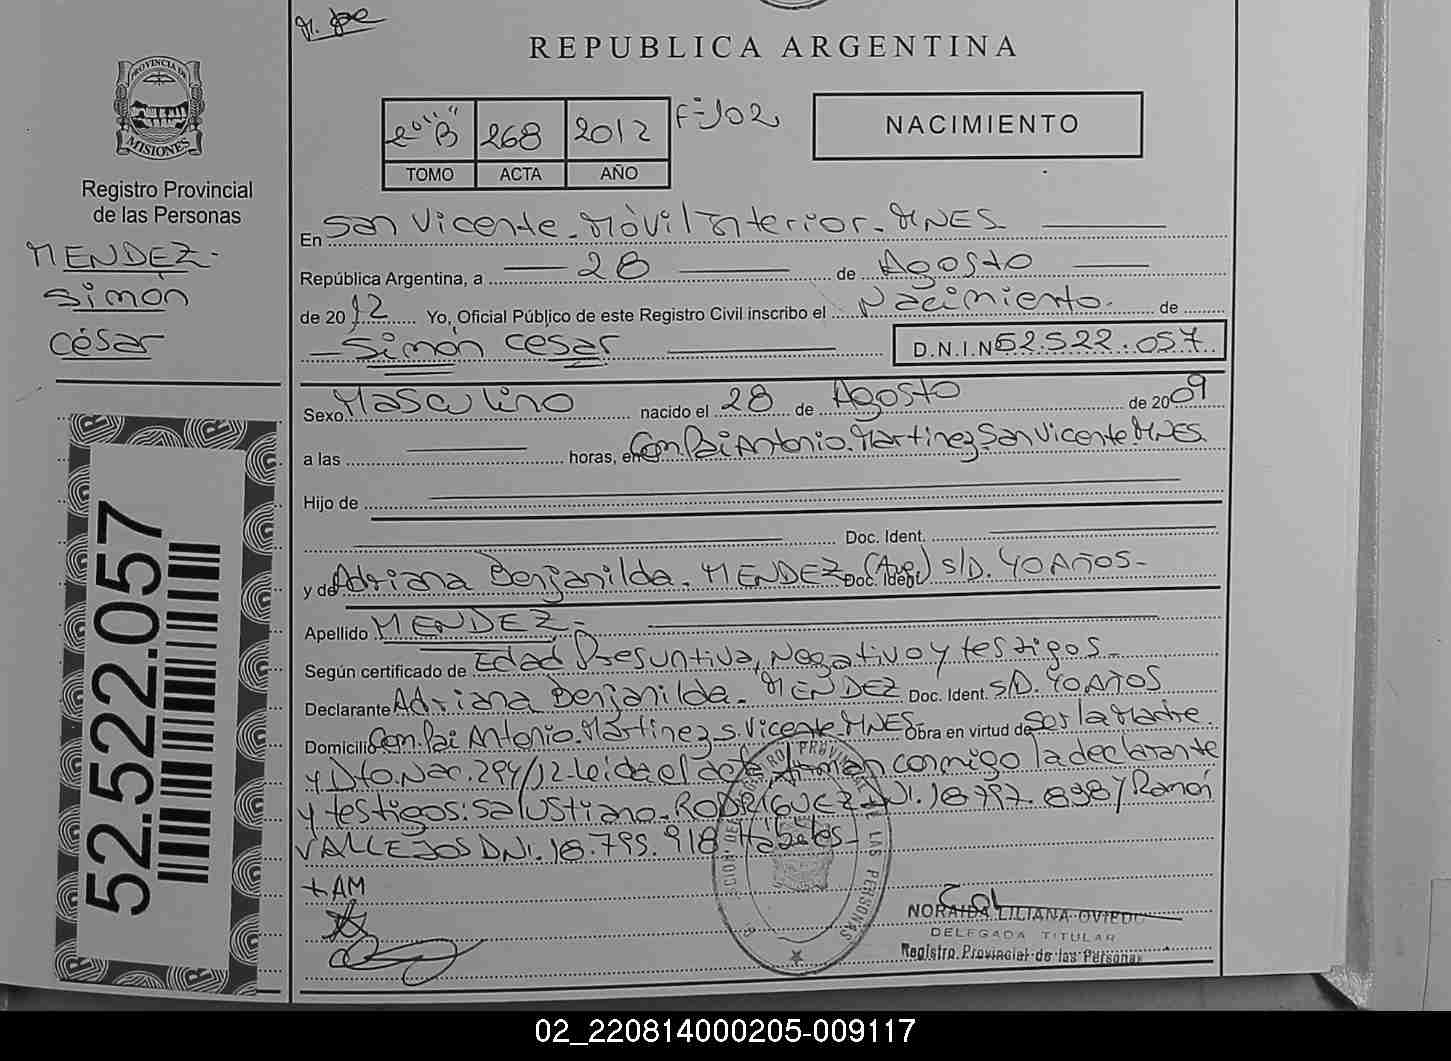 REPUBLICA ARGENTINA
PROVINCIA DE
MISIONES
Registro Provincial
de las Personas
MENDEZ.
Simón
césar
52.522.057
2º "B" 268 2012 F-102
TOMO ACTA AÑO
NACIMIENTO
En San Vicente. Móvil Interior. MNES
República Argentina, a 28 de Agosto
de 2012 Yo, Oficial Público de este Registro Civil inscribo el Nacimiento. de
Simón cesar D.N.I.N 52.522.057
Sexo Masculino nacido el 28 de Agosto de 2009
a las horas, en Com. Pai Antonio. Martinez San Vicente MNES.
Hijo de
Doc. Ident.
y de Adriana Benjanilda. MENDEZ Doc. Ident. S/D. 40 AÑOS-
Apellido MENDEZ-
Según certificado de Edad Presuntiva, Negativo y testigos-
Declarante Adriana Benjanilda. MENDEZ Doc. Ident. S/D. 40 AÑOS
Domicilio Com. Pai Antonio. Martinez S. Vicente MNES- Obra en virtud de Ser la Madre
y Dto. Nac. 294/12-Leída el acta firman conmigo la declarante
y testigos: Salustiano. RODRIGUEZ DNI. 18.797.898 y Ramón
VALLEJOS DNI. 18.795.918 Hábiles-
+AM
PROVINCIAL DE LAS PERSONAS
NORAIDA LILIANA OVIEDO
DELEGADA TITULAR
Registro Provincial de las Personas
02_220814000205-009117